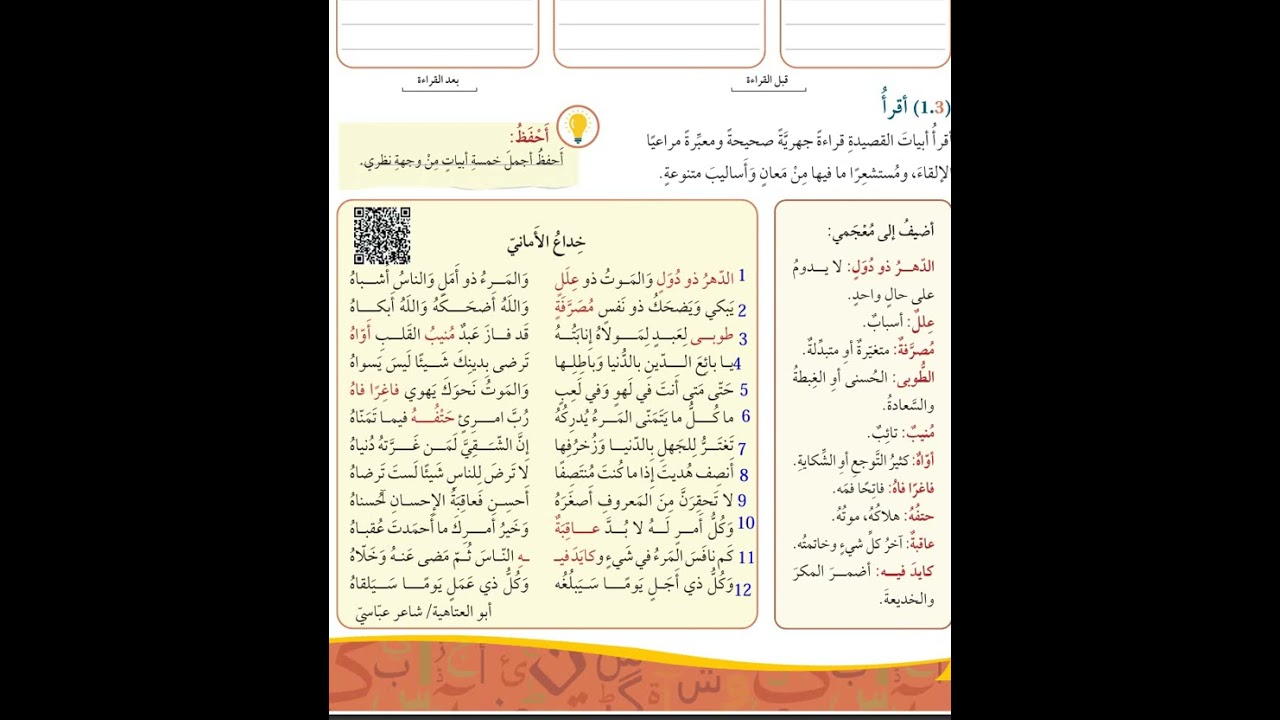 قبل القراءة
بعد القراءة
(1.3) أقرأُ
أقرأُ أبياتَ القصيدةِ قراءةً جهريَّةً صحيحةً ومعبِّرةً مراعيًا
الإلقاءَ، ومُستشعِرًا ما فيها مِنْ مَعانٍ وَأساليبَ متنوعةٍ.
أَحْفَظُ:
أَحفظُ أجملَ خمسةِ أبياتٍ مِنْ وجهةِ نظري.
أضيفُ إلى مُعْجَمي:
الدّهرُ ذو دُوَلٍ: لا يدومُ
على حالٍ واحدٍ.
عِللٌ: أسبابٌ.
مُصرَّفةٌ: متغيّرةٌ أو متبدِّلةٌ.
الطُّوبى: الحُسنى أوِ الغِبطةُ
والسَّعادةُ.
مُنيبٌ: تائِبٌ.
أوّاهٌ: كثيرُ التَّوجعِ أوِ الشِّكايةِ.
فاغرًا فاهُ: فاتِحًا فمَه.
حتفُهُ: هلاكُهُ، موتُهُ.
عاقبةٌ: آخرُ كلِّ شيءٍ وخاتمتُه.
كايدَ فيه: أضمرَ المكرَ
والخديعةَ.
خِداعُ الأَمانيّ
1 الدّهرُ ذو دُوَلٍ وَالمَوتُ ذو عِلَلٍ وَالمَرءُ ذو أَمَلٍ وَالناسُ أَشباهُ
2 يَبكي وَيَضحَكُ ذو نَفسٍ مُصَرَّفَةٍ وَاللهُ أَضحَكَهُ وَاللهُ أَبكاهُ
3 طوبى لِعَبدٍ لِمَولاهُ إِنابَتُهُ قَد فازَ عَبدٌ مُنيبُ القَلبِ أَوّاهُ
4 يا بائِعَ الدّينِ بِالدُّنيا وَباطِلِها تَرضى بِدينِكَ شَيئًا لَيسَ يَسواهُ
5 حَتّى مَتى أَنتَ في لَهوٍ وَفي لَعِبٍ وَالمَوتُ نَحوَكَ يَهوي فاغِرًا فاهُ
6 ما كُلُّ ما يَتَمَنّى المَرءُ يُدرِكُهُ رُبَّ امرِئٍ حَتْفُهُ فيما تَمَنّاهُ
7 تَغتَرُّ لِلجَهلِ بِالدّنيا وَزُخرُفِها إِنَّ الشَّقِيَّ لَمَن غَرَّتهُ دُنياهُ
8 أَنصِف هُديتَ إِذا ما كُنتَ مُنتَصِفًا لا تَرضَ لِلناسِ شَيئًا لَستَ تَرضاهُ
9 لا تَحقِرَنَّ مِنَ المَعروفِ أَصغَرَهُ أَحسِن فَعاقِبَةُ الإِحسانِ حُسناهُ
10 وَكُلُّ أَمرٍ لَهُ لا بُدَّ عاقِبَةٌ وَخَيرُ أَمرِكَ ما أَحمَدتَ عُقباهُ
11 كَم نافَسَ المَرءُ في شَيءٍ وكايَدَ فيـ ـهِ النّاسَ ثُمّ مَضى عَنهُ وَخَلّاهُ
12 وَكُلُّ ذي أَجَلٍ يَومًا سَيَبلُغُه وَكُلُّ ذي عَمَلٍ يَومًا سَيَلقاهُ
أبو العتاهية/ شاعر عبّاسيّ